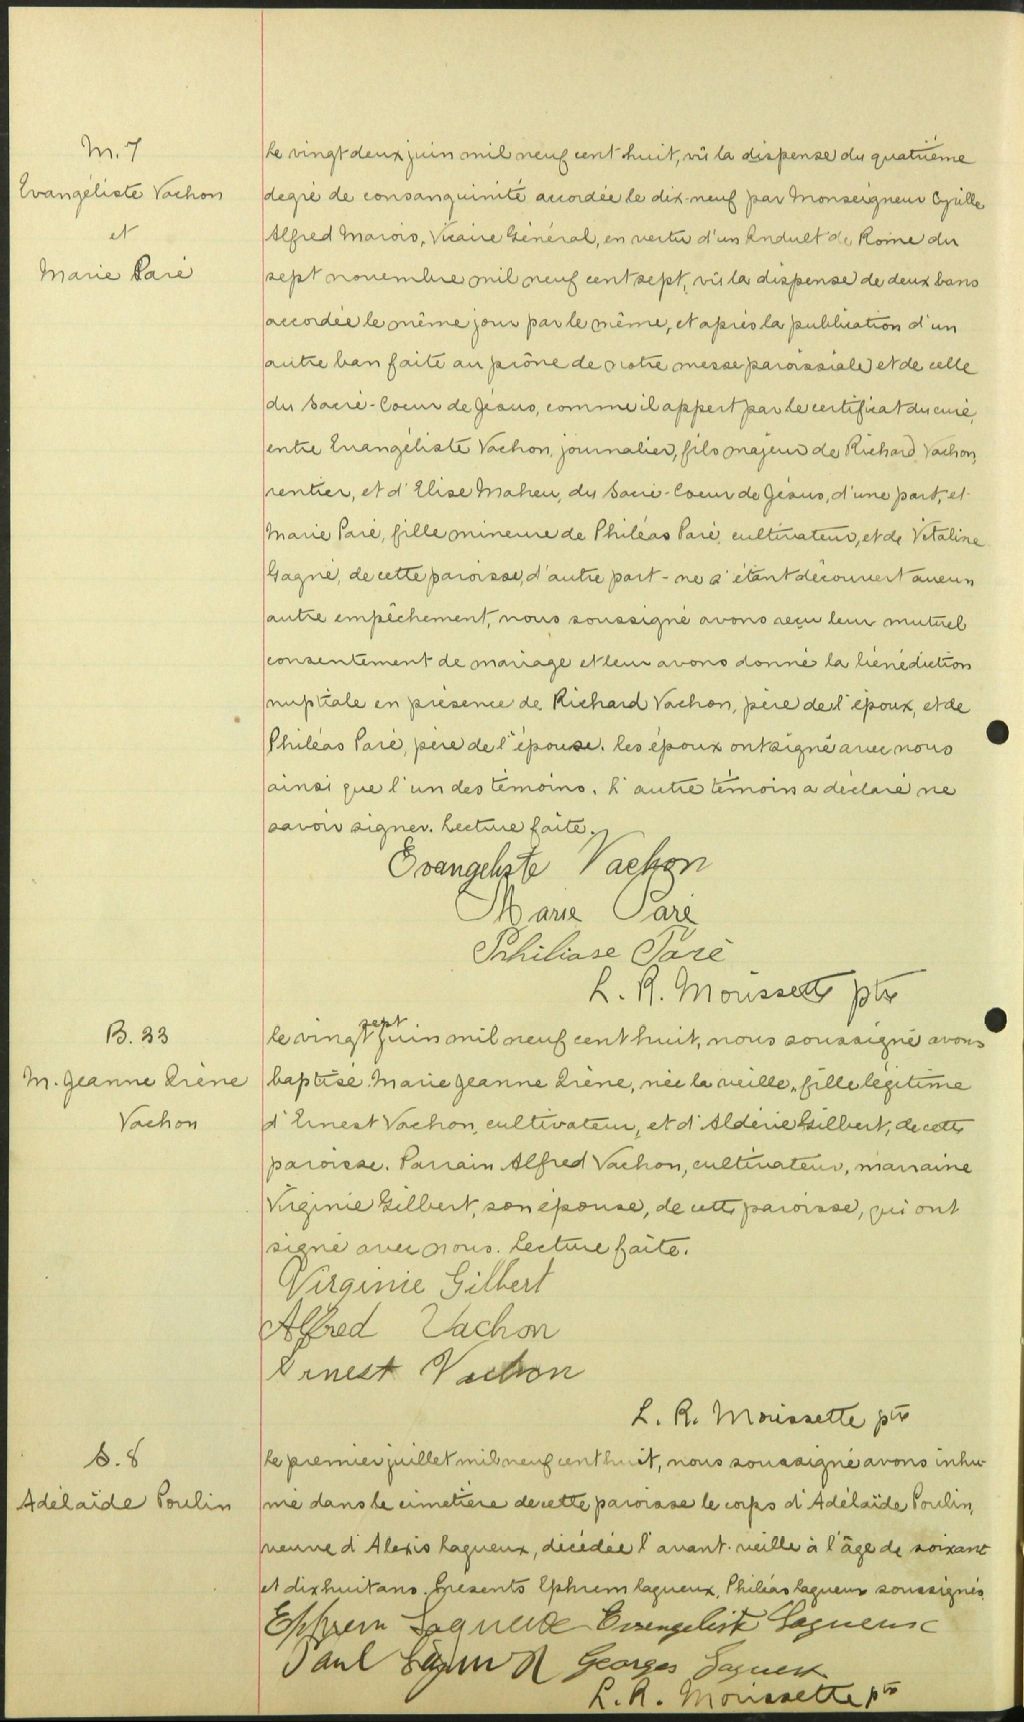 M. 7
Evangéliste Vachon
et
Marie Paré
Le vingt deux juin mil neuf cent huit, vû la dispense du quatrième
degré de consanguinité accordée le dix-neuf par Monseigneur Cyrille
Alfred Marois, Vicaire Général, en vertu d'un Indult de Rome du
sept novembre mil neuf cent sept, vû la dispense de deux bans
accordée le même jour par le même, et après la publication d'un
autre ban faite au prône de notre messe paroissiale et de celle
du Sacré-Coeur de Jésus, comme il appert par le certificat du curé,
entre Evangéliste Vachon, journalier, fils majeur de Richard Vachon,
rentier, et d'Elise Maheu, du Sacré-Coeur de Jésus, d'une part, et
Marie Paré, fille mineure de Philéas Paré, cultivateur, et de Vitaline
Gagné, de cette paroisse, d'autre part - ne s'étant découvert aucun
autre empêchement, nous soussigné avons reçu leur mutuel
consentement de mariage et leur avons donné la bénédiction
nuptiale en présence de Richard Vachon, père de l'époux, et de
Philéas Paré, père de l'épouse. Les époux ont signé avec nous
ainsi que l'un des témoins. L'autre témoin a déclaré ne
savoir signer. Lecture faite.
Evangeliste Vachon
Marie Paré
Philiase Paré
L. R. Morissette ptre
B. 33
M. Jeanne Irène
Vachon
Le vingt sept juin mil neuf cent huit, nous soussigné avons
baptisé Marie Jeanne Irène, née la veille, fille légitime
d'Ernest Vachon, cultivateur, et d'Aldérie Gilbert, de cette
paroisse. Parrain Alfred Vachon, cultivateur, marraine
Virginie Gilbert, son épouse, de cette paroisse, qui ont
signé avec nous. Lecture faite.
Virginie Gilbert
Alfred Vachon
Ernest Vachon
L. R. Morissette ptre
S. 8
Adélaïde Poulin
Le premier juillet mil neuf cent huit, nous soussigné avons inhu-
mé dans le cimetière de cette paroisse le corps d'Adélaïde Poulin,
veuve d'Alexis Lagueux, décédée l'avant-veille à l'âge de soixant
et dix huit ans. Présents Ephrem Lagueux, Philéas Lagueux soussignés.
Ephrem Lagueux Evangeliste Lagueux
Paul Georges Lagueux
L. R. Morissette ptre